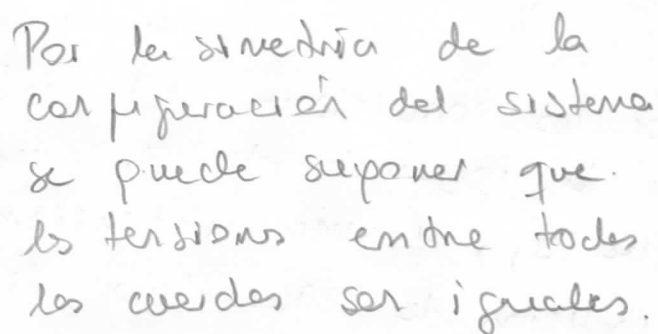 Por la simetria de la
configuración del sistema
se puede suponer que
las tensiones entre todas
las cuerdas son iguales.